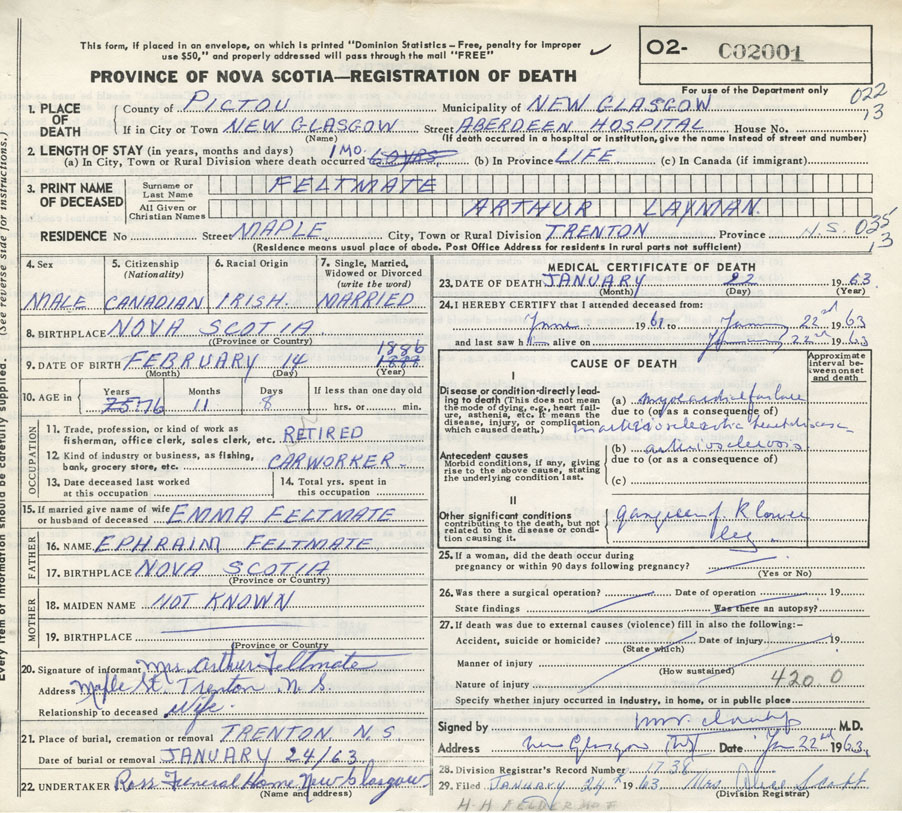 This form, if placed in an envelope, on which is printed "Dominion Statistics - Free, penalty for improper
use $50," and properly addressed will pass through the mail "FREE"
O2- C02001
PROVINCE OF NOVA SCOTIA—REGISTRATION OF DEATH
For use of the Department only
022
13
1. PLACE OF DEATH
County of PICTOU Municipality of NEW GLASGOW
If in City or Town NEW GLASGOW Street ABERDEEN HOSPITAL House No.
(Name) (If death occurred in a hospital or institution, give the name instead of street and number)
2. LENGTH OF STAY (in years, months and days)
(a) In City, Town or Rural Division where death occurred 1 MO. (b) In Province LIFE (c) In Canada (if immigrant)
3. PRINT NAME OF DECEASED
Surname or Last Name FELTMATE
All Given or Christian Names ARTHUR LAYMAN
RESIDENCE No Street MAPLE City, Town or Rural Division TRENTON Province N.S. 035
13
(Residence means usual place of abode. Post Office Address for residents in rural parts not sufficient)
4. Sex 5. Citizenship (Nationality) 6. Racial Origin 7. Single, Married, Widowed or Divorced (write the word)
MALE CANADIAN IRISH. MARRIED
8. BIRTHPLACE NOVA SCOTIA
(Province or Country)
9. DATE OF BIRTH FEBRUARY 14 1886 1887
(Month) (Day) (Year)
10. AGE in Years Months Days If less than one day old
75 76 11 8 hrs. or min.
OCCUPATION
11. Trade, profession, or kind of work as
fisherman, office clerk, sales clerk, etc. RETIRED
12. Kind of industry or business, as fishing,
bank, grocery store, etc. CARWORKER
13. Date deceased last worked
at this occupation
14. Total yrs. spent in
this occupation
15. If married give name of wife
or husband of deceased EMMA FELTMATE
FATHER
16. NAME EPHRAIM FELTMATE
17. BIRTHPLACE NOVA SCOTIA
(Province or Country)
MOTHER
18. MAIDEN NAME NOT KNOWN
19. BIRTHPLACE
(Province or Country)
20. Signature of informant Mrs Arthur Feltmate
Address Maple St. Trenton N. S.
Relationship to deceased Wife
21. Place of burial, cremation or removal TRENTON N. S
Date of burial or removal JANUARY 24/63
22. UNDERTAKER Ross Funeral Home New Glasgow
(Name and address)
MEDICAL CERTIFICATE OF DEATH
23. DATE OF DEATH JANUARY 22 1963
(Month) (Day) (Year)
24. I HEREBY CERTIFY that I attended deceased from:
1961 to 22nd 1963
and last saw h alive on 22nd 1963
CAUSE OF DEATH
Approximate interval between onset and death
I
Disease or condition directly leading to death (This does not mean the mode of dying, e.g., heart failure, asthenia, etc. It means the disease, injury, or complication which caused death.)
(a) myocardial failure
due to (or as a consequence of)
arteriosclerotic heart disease
Antecedent causes
Morbid conditions, if any, giving rise to the above cause, stating the underlying condition last.
(b) arteriosclerosis
due to (or as a consequence of)
(c)
II
Other significant conditions
contributing to the death, but not related to the disease or condition causing it.
gangrene of R lower leg
25. If a woman, did the death occur during
pregnancy or within 90 days following pregnancy?
(Yes or No)
26. Was there a surgical operation? Date of operation 19
State findings Was there an autopsy?
27. If death was due to external causes (violence) fill in also the following:–
Accident, suicide or homicide? Date of injury 19
(State which)
Manner of injury
(How sustained)
Nature of injury 420 0
Specify whether injury occurred in industry, in home, or in public place
Signed by M.D.
Address New Glasgow Date Jan 22nd 1963
28. Division Registrar's Record Number 1738
29. Filed JANUARY 24 1963 Mrs
(Division Registrar)
H H FELDERHOF
(See reverse side for instructions.)
Every item of information should be carefully supplied.